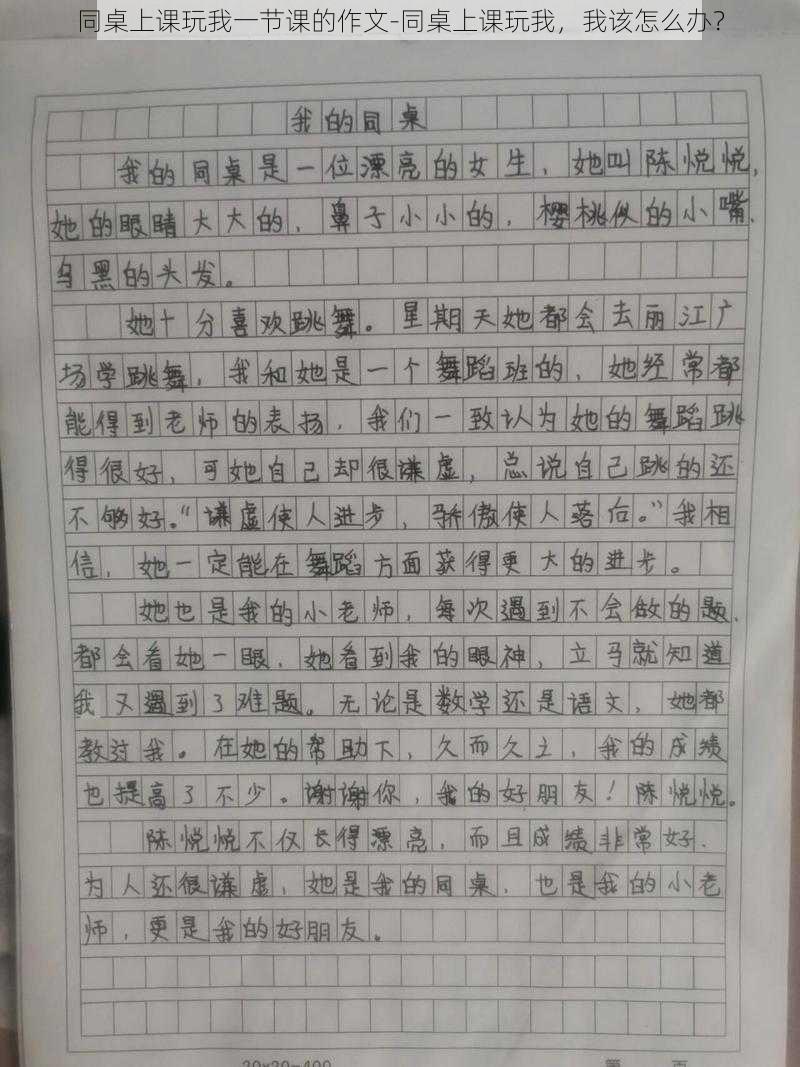 同桌上课玩我一节课的作文-同桌上课玩我，我该怎么办？
我的同桌
我的同桌是一位漂亮的女生，她叫陈悦悦，
她的眼睛大大的，鼻子小小的，樱桃似的小嘴，
乌黑的头发。
她十分喜欢跳舞。星期天她都会去丽江广
场学跳舞，我和她是一个舞蹈班的，她经常都
能得到老师的表扬，我们一致认为她的舞蹈跳
得很好，可她自己却很谦虚，总说自己跳的还
不够好。“谦虚使人进步，骄傲使人落后。”我相
信，她一定能在舞蹈方面获得更大的进步。
她也是我的小老师，每次遇到不会做的题，
都会看她一眼，她看到我的眼神，立马就知道
我又遇到了难题。无论是数学还是语文，她都
教过我。在她的帮助下，久而久之，我的成绩
也提高了不少。谢谢你，我的好朋友！陈悦悦。
陈悦悦不仅长得漂亮，而且成绩非常好，
为人还很谦虚，她是我的同桌，也是我的小老
师，更是我的好朋友。
20×20=400